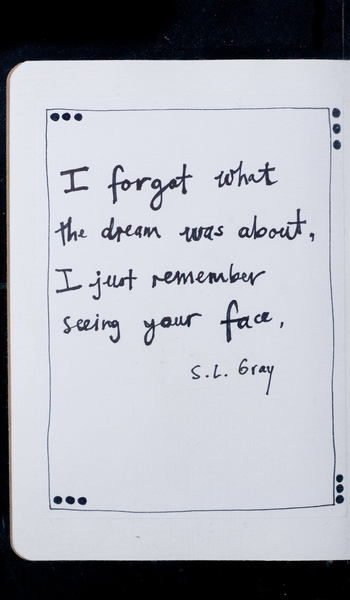 I forgot what
the dream was about,
I just remember
seeing your face,
S.L. Gray